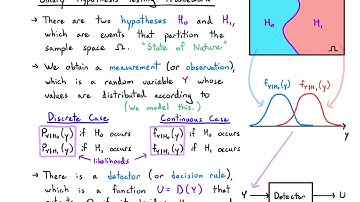 Binary Hypothesis Testing Framework
→ There are two hypotheses H₀ and H₁,
which are events that partition the
sample space Ω. "State of Nature"
→ We obtain a measurement (or observation),
which is a random variable Y whose
values are distributed according to
(We model this.)
Discrete Case Continuous Case
P_Y|H₀(y) if H₀ occurs f_Y|H₀(y) if H₀ occurs
P_Y|H₁(y) if H₁ occurs f_Y|H₁(y) if H₁ occurs
likelihoods
→ There is a detector (or decision rule),
which is a function U = D(Y) that
H₀ H₁
f_Y|H₀(y) f_Y|H₁(y)
y
Y → Detector → U